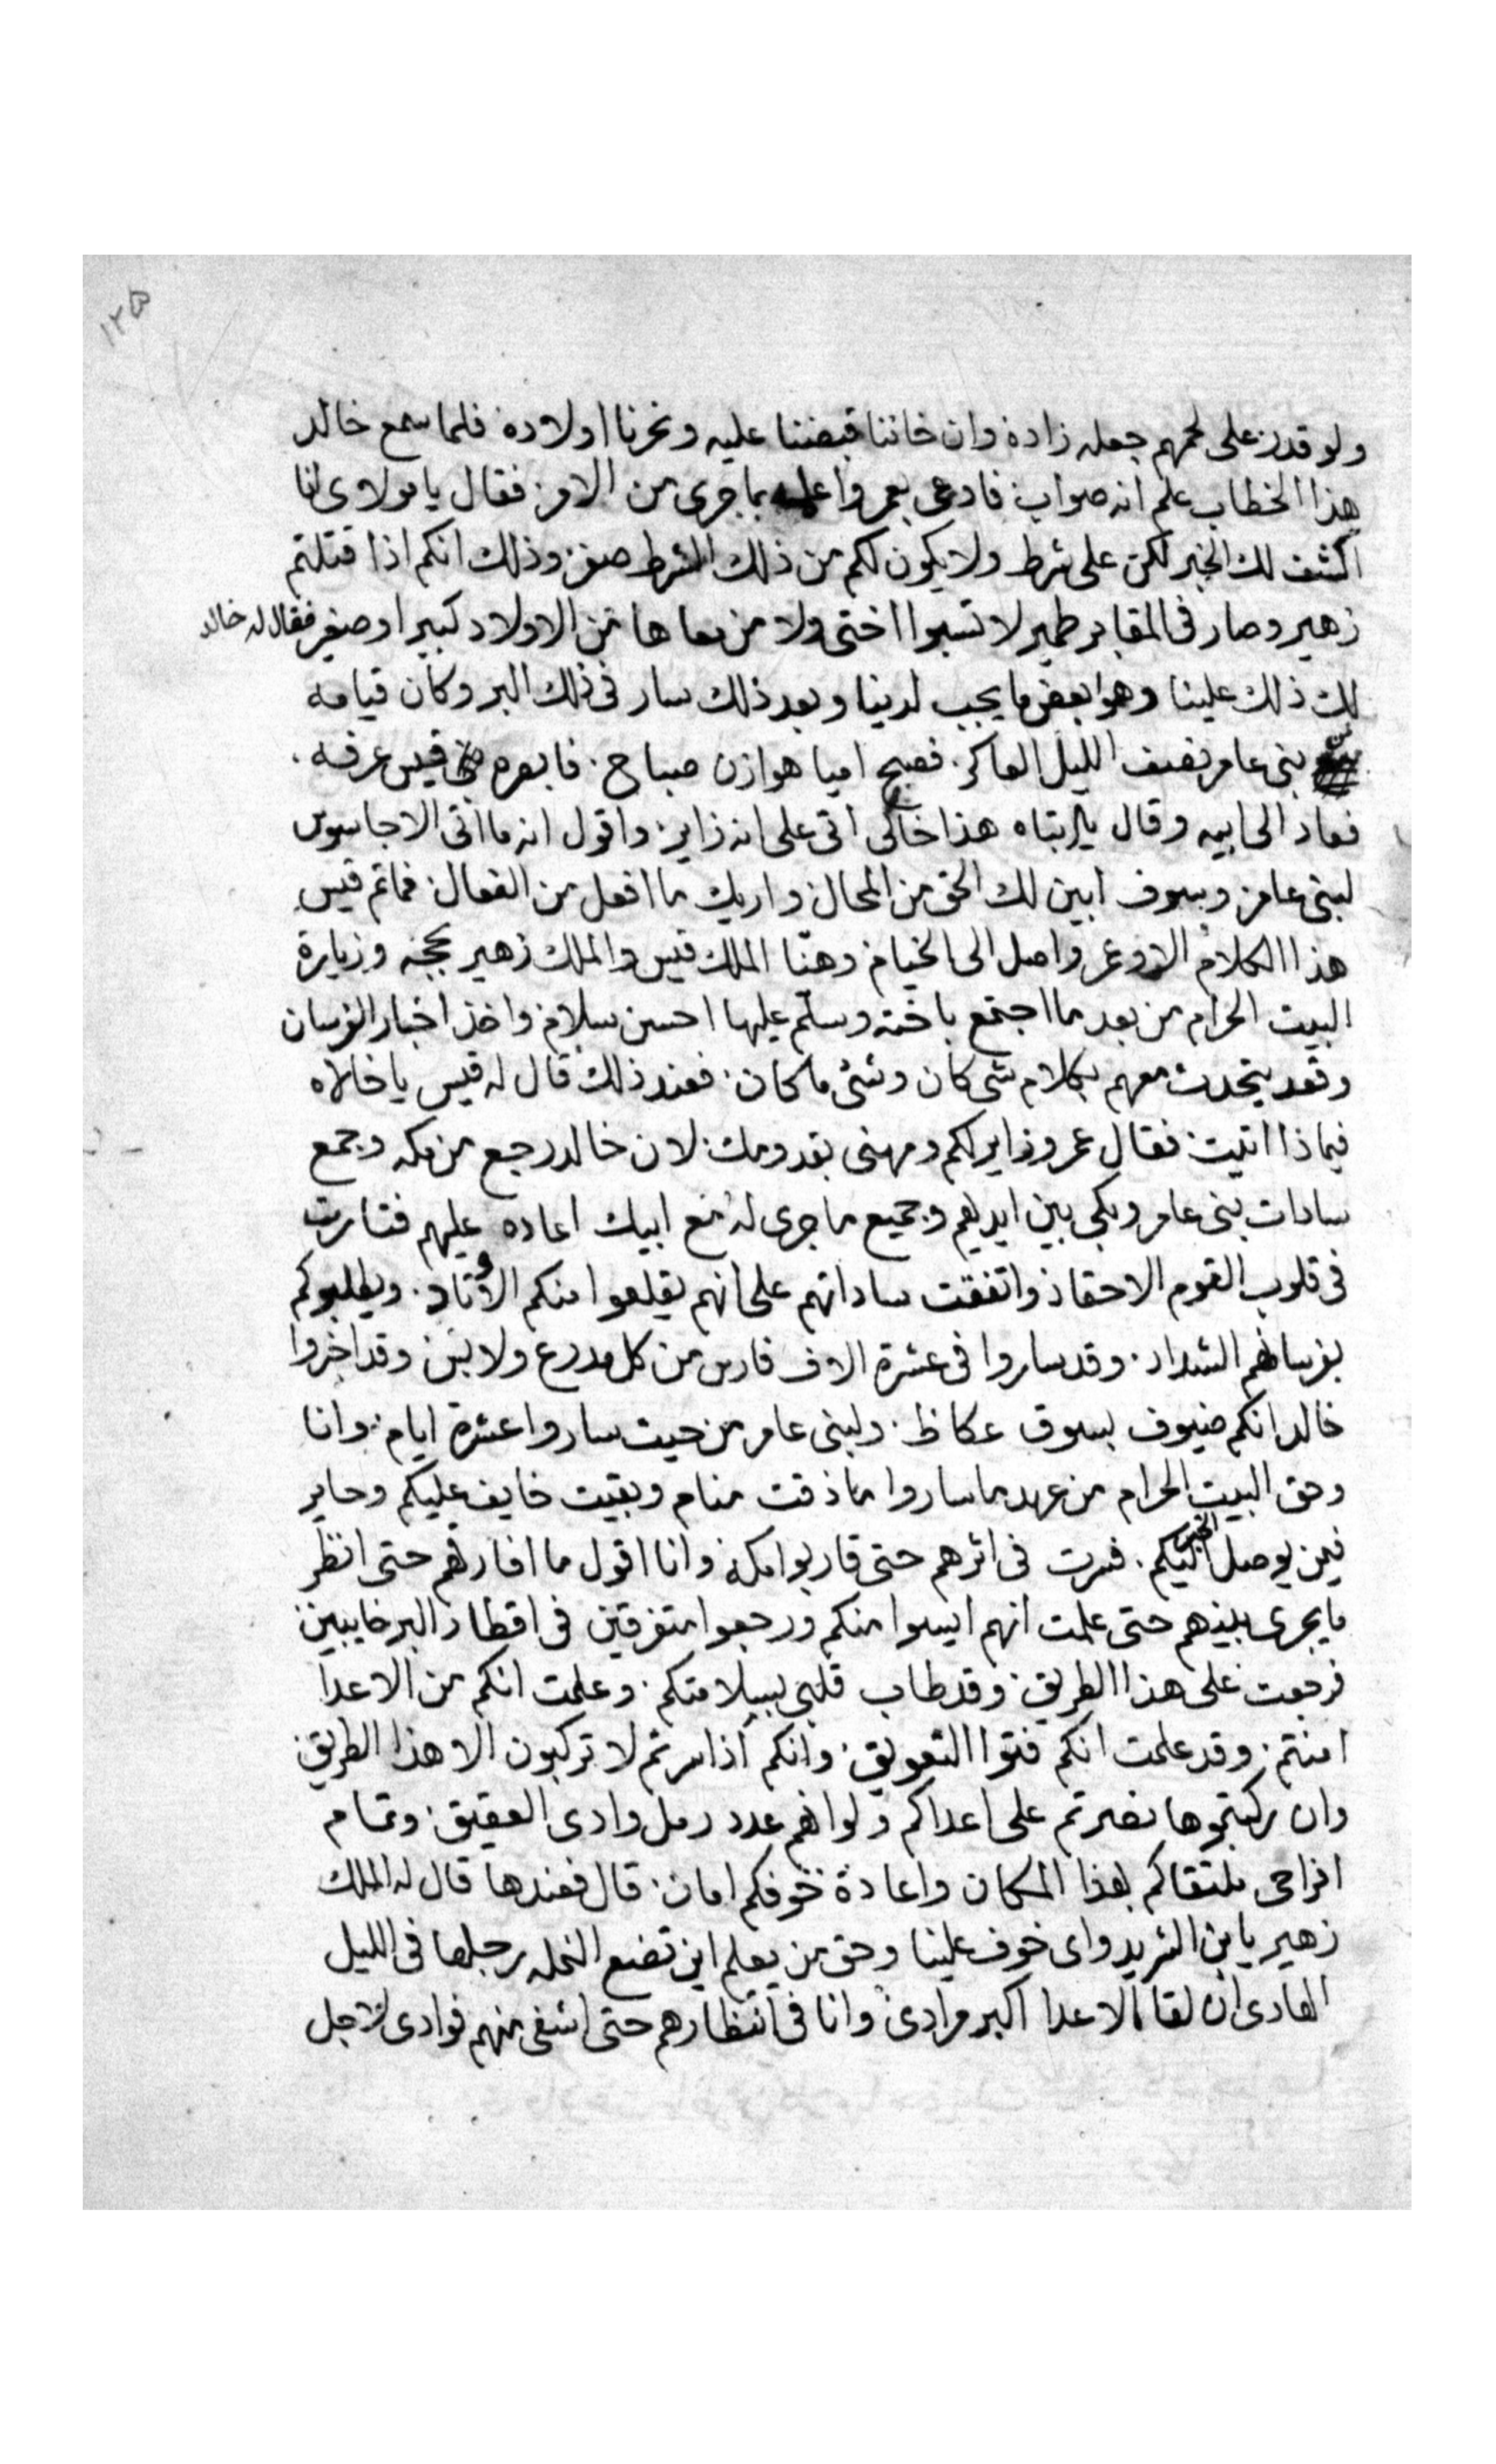 ١٢٥
ولو قدر على لحمهم جعله زاده وان خاننا قبضنا عليه ونحرنا اولاده فلما سمع خالد
هذا الخطاب علم انه صواب فادعى بعمرو اعلمه بما جرى من الامر فقال يا مولاى انا
اكشف لك الخبر لكن على شرط ولا يكون لكم من ذلك الشرط وذلك انكم اذا قتلتم
زهير وصار فى المقابر طمير لا تسبوا اختى ولا من معاها من الاولاد كبير او صغير فقال له خالد
لك ذلك علينا وهو بعض ما يجب لدينا وبعد ذلك سار فى ذلك البر وكان قيامه
من بنى عامر نصف الليل العاكر. فصبح احيا هوازن صباح. فابصره قيس عرفه.
فعاد الى ابيه وقال يا ابتاه هذا خالى اتى على انه زاير واقول انه ما اتى الا جاسوس
لبنى عامر وسوف ابين لك الحق من المحال واريك ما افعل من الفعال فما تم قيس
هذا الكلام الا وعمر واصل الى الخيام وهنّا الملك قيس والملك زهير بحجه وزيارة
البيت الحرام من بعد ما اجتمع باخته وسلّم عليها احسن سلام واخذ اخبار الفرسان
وقعد يتحدث معهم بكلام شى كان وشئ ما كان. فعند ذلك قال له قيس يا خالاه
فيما ذا اتيت فقال عمرو زايركم ومهنى بقدومك لان خالد رجع من مكه وجمع
سادات بنى عامر وبكى بين ايديهم وجميع ما جرى له مع ابيك اعاده عليهم فثارت
فى قلوب القوم الاحقاد واتفقت ساداتهم على انهم يقلعوا منكم الاوتاد. ويطلبوكم
بفرسانهم الشداد. وقد ساروا فى عشرة الاف فارس من كل مدرع ولابس وقد اخبروا
خالد انكم ضيوف بسوق عكاظ. ولبنى عامر من حيت ساروا عشرة ايام. وانا
وحق البيت الحرام من عهد ما ساروا ما ذقت منام وبقيت خايف عليكم وحاير
فيمن يوصل الخبر اليكم. فسرت فى اثرهم حتى قاربوا مكه وانا اقول ما افارقهم حتى انظر
ما يجرى بينهم حتى علمت انهم ايسوا منكم ورجعوا متفرقين فى اقطار البر خايبين
فرجعت على هذا الطريق. وقد طاب قلبى بسلامتكم. وعلمت انكم من الاعدا
امنتم. وقد علمت انكم فتوا التعويق. وانكم اذا سرتم لا تركبون الا هذا الطريق
وان ركبتموها نصرتم على اعداكم ولو انهم عدد رمل وادى العقيق. وتمام
افراحى ملتقاكم بهذا المكان واعادة خوفكم امان. قال فعندها قال له الملك
زهير يا بن الشريد واى خوف علينا وحق من يعلم اين تضع النمله رجلها فى الليل
الهادى ان لقا الاعدا اكبر مرادى وانا فى انتظارهم حتى اشفى منهم فوادى لاجل